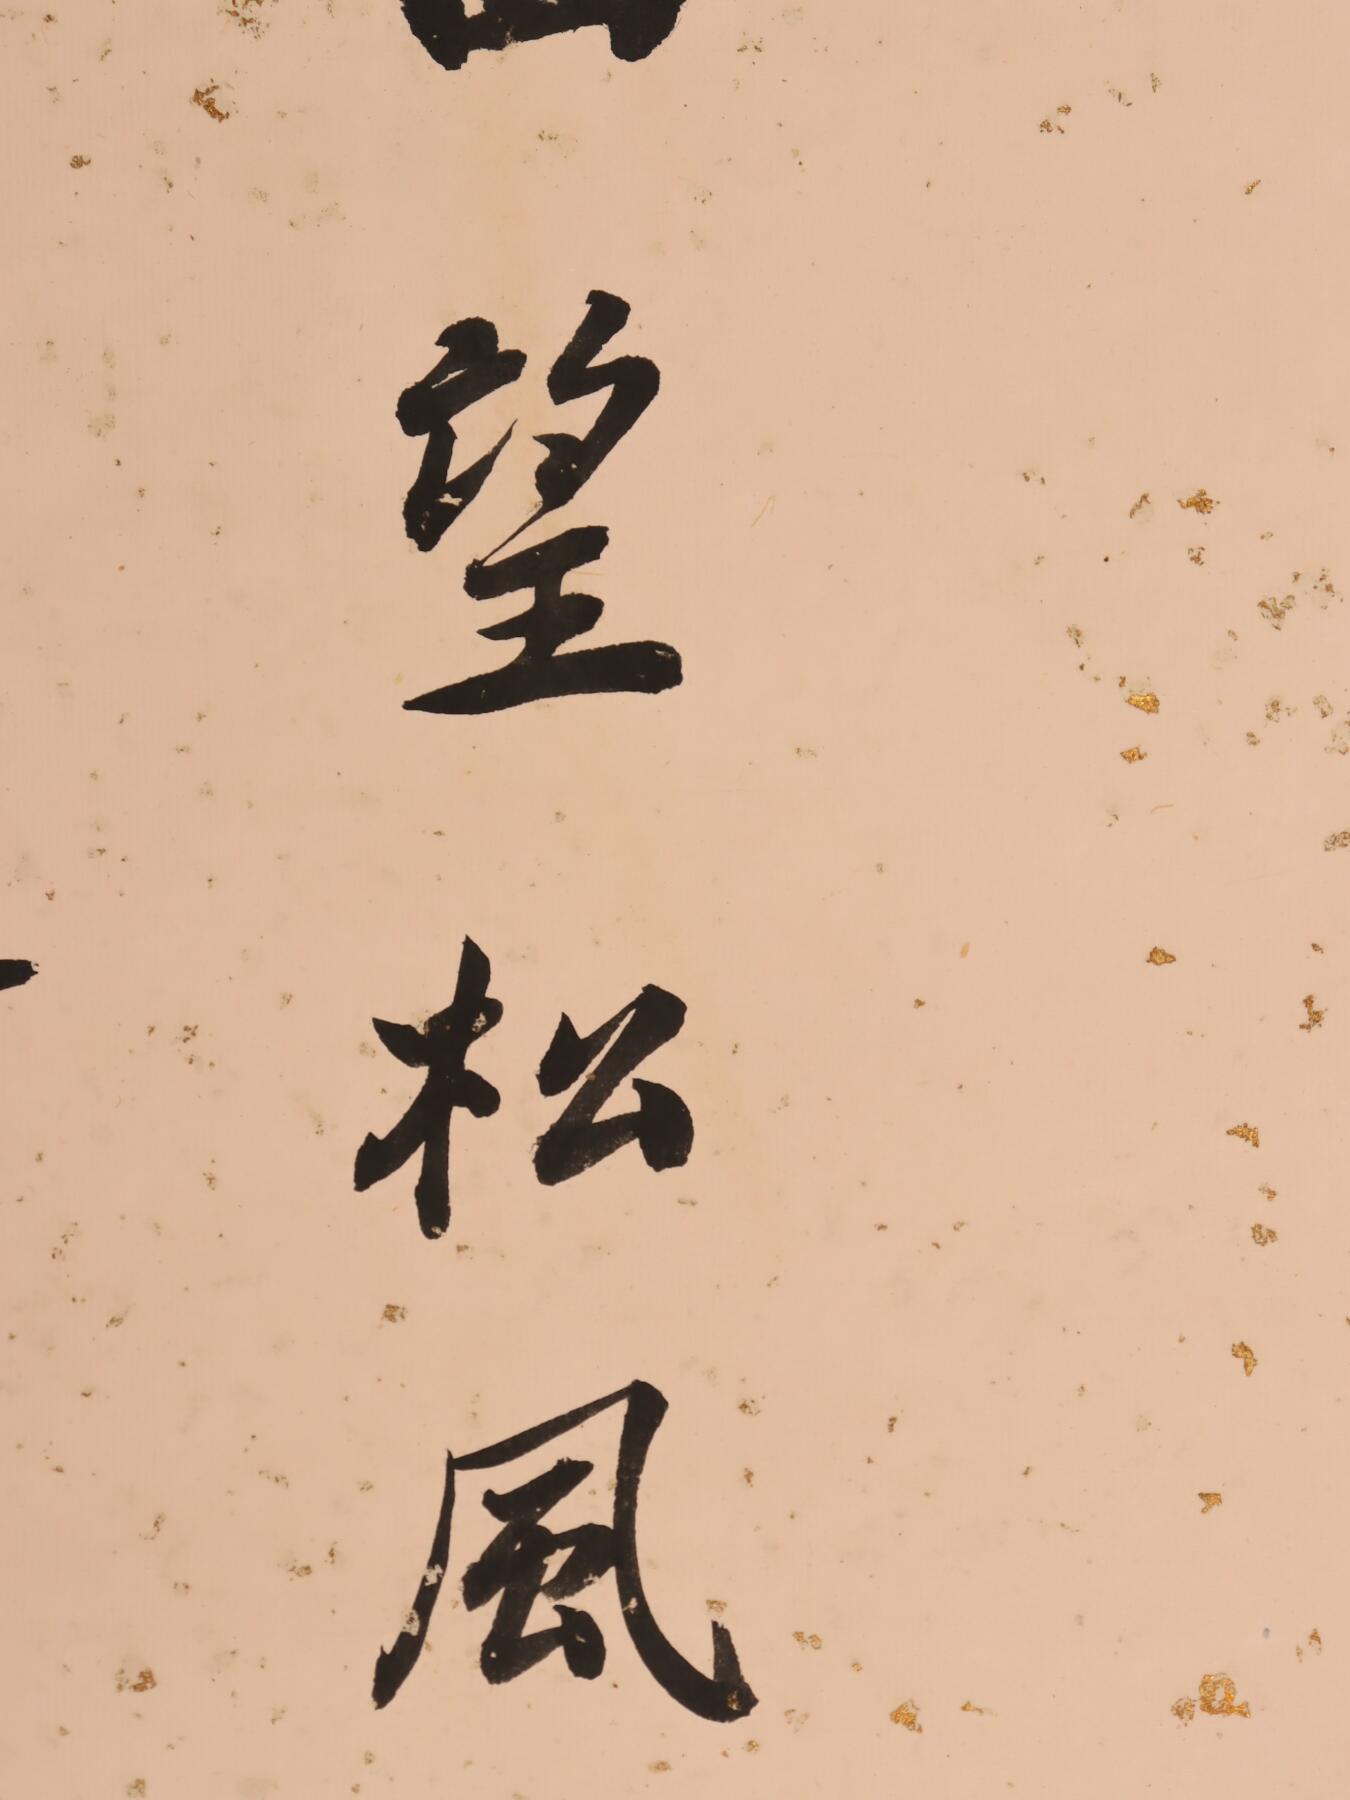 望松風